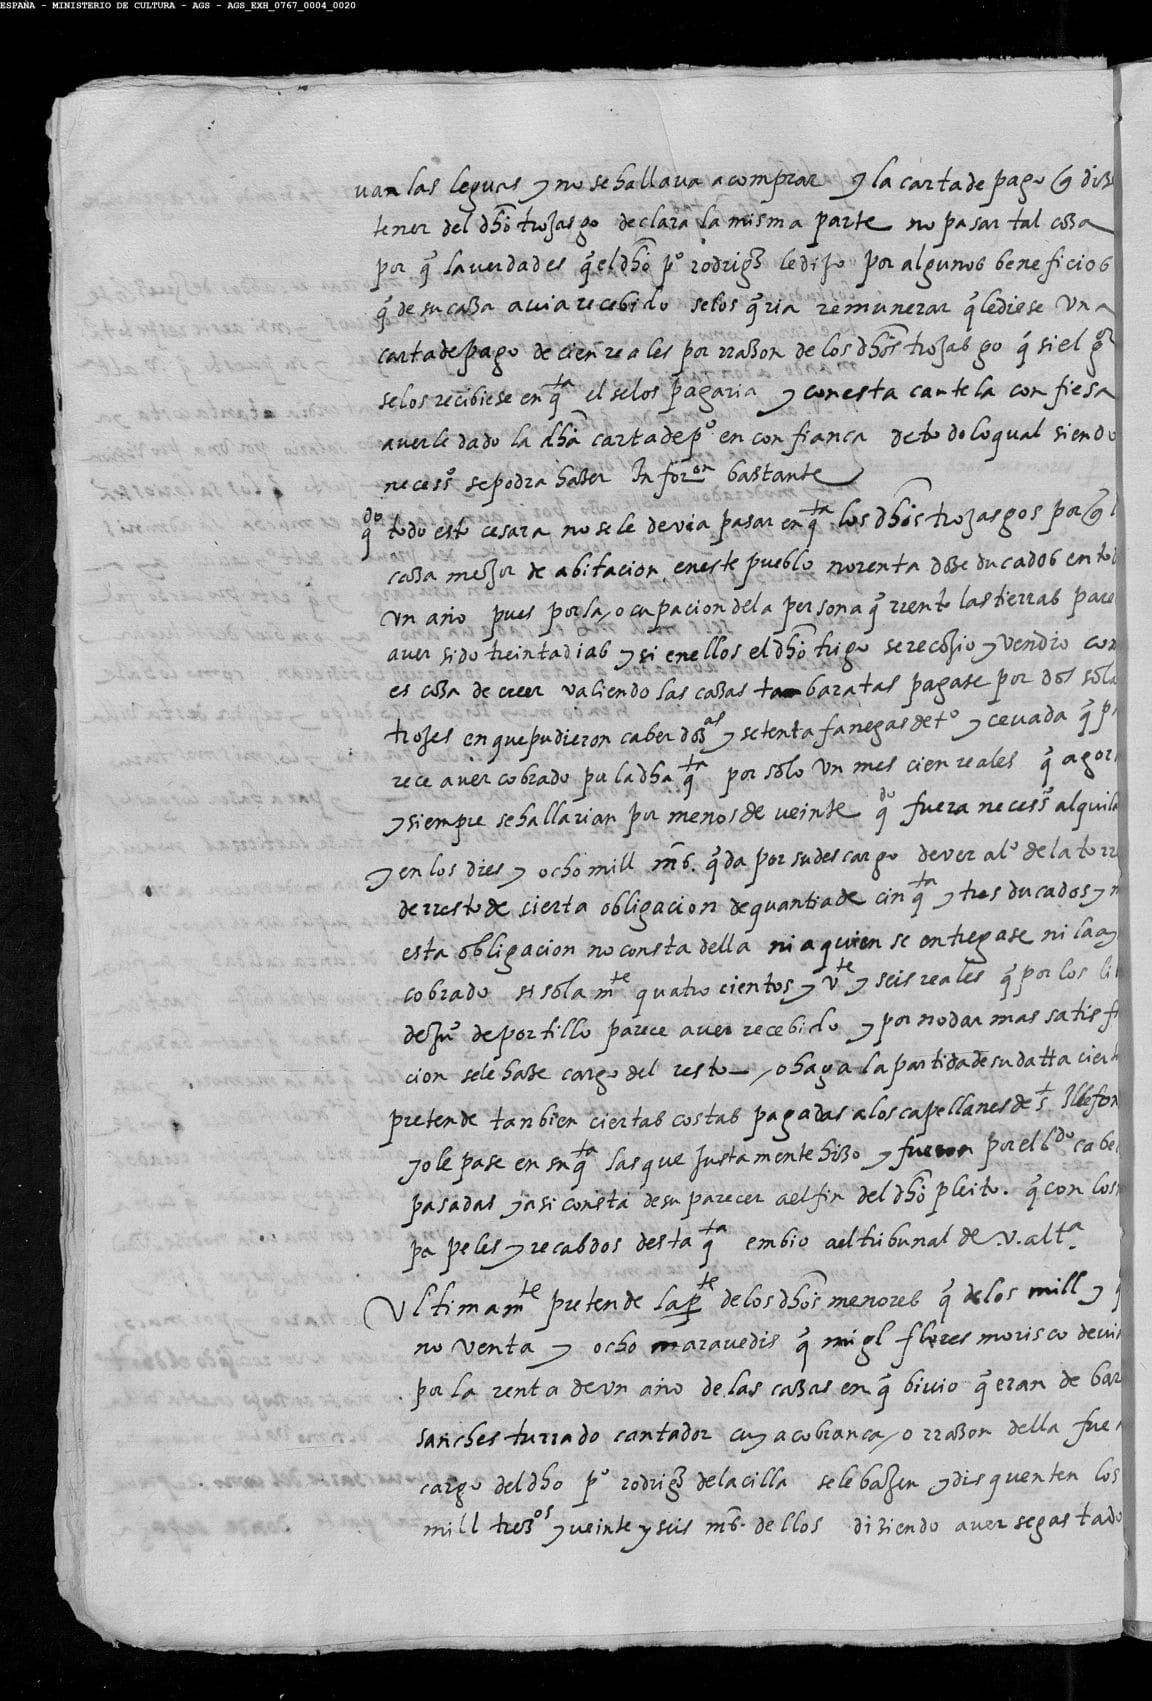 ESPAÑA - MINISTERIO DE CULTURA - AGS - AGS_EXH_0767_0004_0020
uan las leguas y no se hallaua a comprar y la carta de pago q̃ diz
tener del dho troxasgo declara la misma parte no pasar tal cosa
por q̃ la verdad es q̃ el dho pº rodrigz le dijo por algunos beneficios
q̃ de su casa auia recebido selos q̃ria remunerar q̃ le diese una
carta de pago de cien reales por rrazon de los dhos troxasgo q̃ si el
se los recibiese en qta el se los pagaria y con esta cautela confiesa
auerle dado la dha carta de pº en confianca de todo lo qual siendo
necessº se podra hazer Inforon bastante
qdo todo esto cesara no se le deuia pasar en qta los dhos troxasgos por q̃ l
casa mejor de abitacion en este pueblo no renta doze ducados en to
un año pues por la ocupacion de la persona q̃ rrento las tierras pare
auer sido treinta dias y si en ellos el dho trigo se recojio y vendio com
es cosa de creer valiendo las casas tan baratas pagase por dos solas
trojes en que pudieron caber dozas y setenta fanegas de tº y ceuada q̃ pa
rece auer cobrado pu la dha qta por solo un mes cien reales q̃ agora
y siempre se hallarian por menos de veinte qdo fuera necessº alquila
y en los dies y ocho mill mrs. q̃ da por su descargo dever alº de la torr
de rresto de cierta obligacion de quantia de cinqta y tres ducados y m
esta obligacion no consta della ni a quien se entregase ni la ay
cobrado si sola mte quatrocientos y vte y seis reales q̃ por los li
de juº de portillo parece auer recebido y por no dar mas satisfa
cion se le haze cargo del resto - o haga la partida de su datta cierta
pretende tanbien ciertas costas pagadas a los capellanes de st Illefon
yo le pase en su qta las que justamente hizo y fueron por el ldo cabe
pasadas y asi consta de su parecer ael fin del dho pleito. q̃ con los
papeles y recabdos desta qta embio ael tribunal de .v. altª.
Ultimamte pretende la pte de los dhos menores q̃ de los mill y q
nouenta y ocho marauedis q̃ migl flores morisco deui
por la renta de un año de las casas en q̃ biuio q̃ eran de bar
sanches turrado cantador cuya cobranca o rrazon della fue a
cargo del dho pº rodrigz de la cilla se le bajen y disquenten los
mill trezos y veinte y seis mrs. dellos diziendo auer se gastado